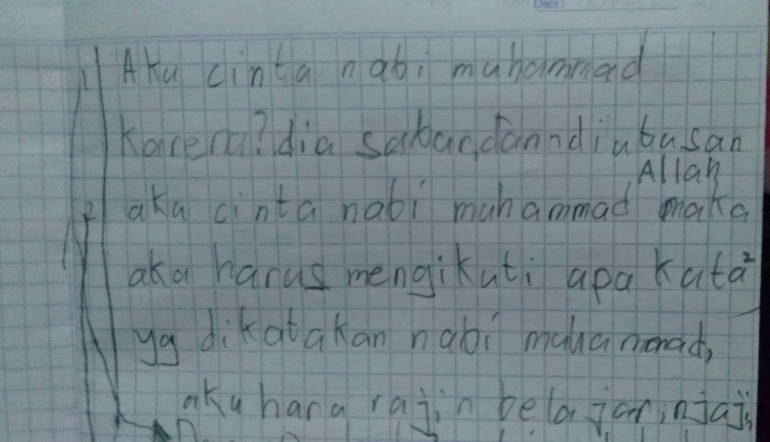 Date:
1 Aku cinta nabi muhammad
Karena? dia sabar, dan diutusan
Allah
2 aku cinta nabi muhammad maka
aku harus mengikuti apa kata²
yg dikatakan nabi muhammad,
aku haru rajin belajar, njaji,